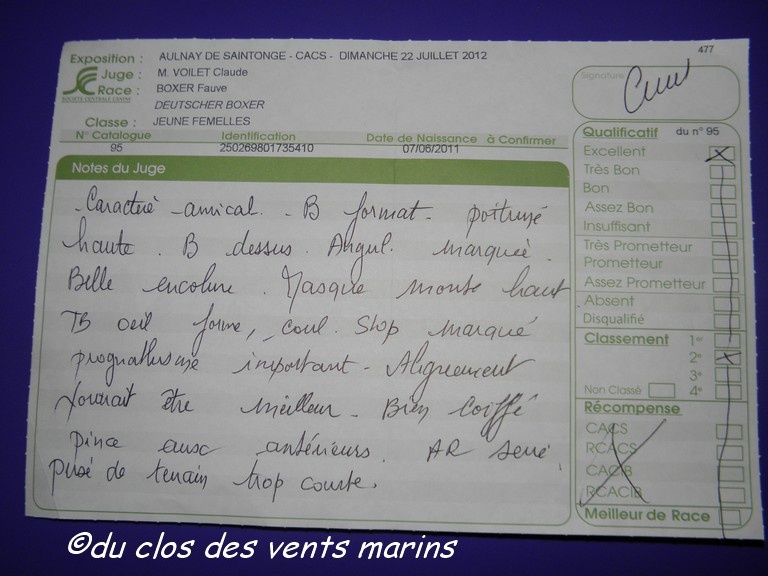 477
Exposition : AULNAY DE SAINTONGE - CACS - DIMANCHE 22 JUILLET 2012
Juge : M. VOILET Claude
Race : BOXER Fauve
SOCIETE CENTRALE CANINE
DEUTSCHER BOXER
Classe : JEUNE FEMELLES
N° Catalogue Identification Date de Naissance à Confirmer
95 250269801735410 07/06/2011
Notes du Juge
Caractère amical. B format. poitrine
haute. B dessus. Angul. marquée.
Belle encolure. Masque monte haut
TB oeil forme, coul. Stop marqué
prognathisme important. Alignement
pourrait être meilleur. Bien coiffé
pince aux antérieurs. AR serré,
prise de terrain trop courte.
Signature
Qualificatif du n° 95
Excellent
Très Bon
Bon
Assez Bon
Insuffisant
Très Prometteur
Prometteur
Assez Prometteur
Absent
Disqualifié
Classement 1er
2e
3e
Non Classé 4e
Récompense
CACS
RCACS
CACIB
RCACIB
Meilleur de Race
©du clos des vents marins